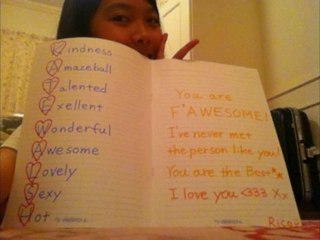 Kindness
Amazeball
Talented
Exellent
Wonderful
Awesome
Lovely
Sexy
Hot
You are
F'AWESOME!
I've never met
the person like you!
You are the Best**
I love you <333 Xx